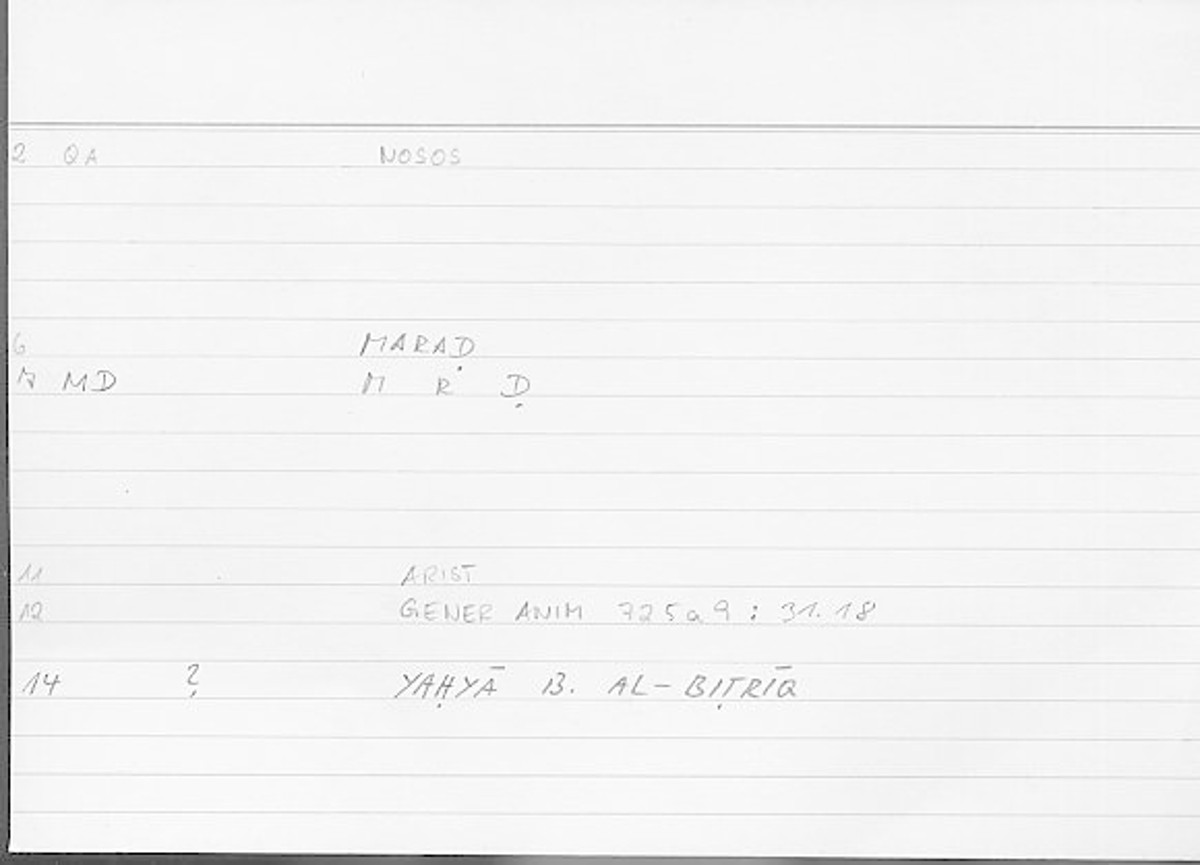 2 QA NOSOS
6 MARAḌ
7 MD M R Ḍ
11 ARIST
12 GENER ANIM 725a9 : 31.18
14 ? YAḤYĀ B. AL-BIṬRĪQ